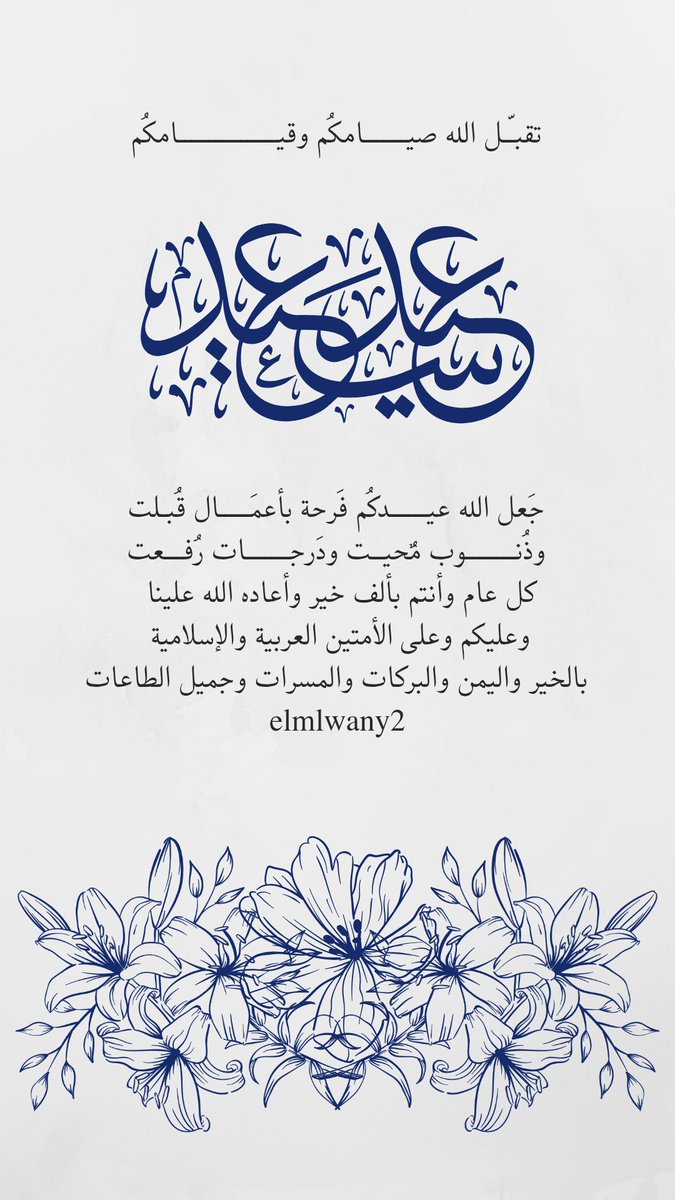 تقبّل الله صيـــامكُم وقيـــــــامكُم
عيد سعيد
جَعل الله عيــدكُم فَرحة بأعمَــال قُبلت
وذُنــــوب مٌحيت ودَرجــــات رُفــعت
كل عام وأنتم بألف خير وأعاده الله علينا
وعليكم وعلى الأمتين العربية والإسلامية
بالخير واليمن والبركات والمسرات وجميل الطاعات
elmlwany2